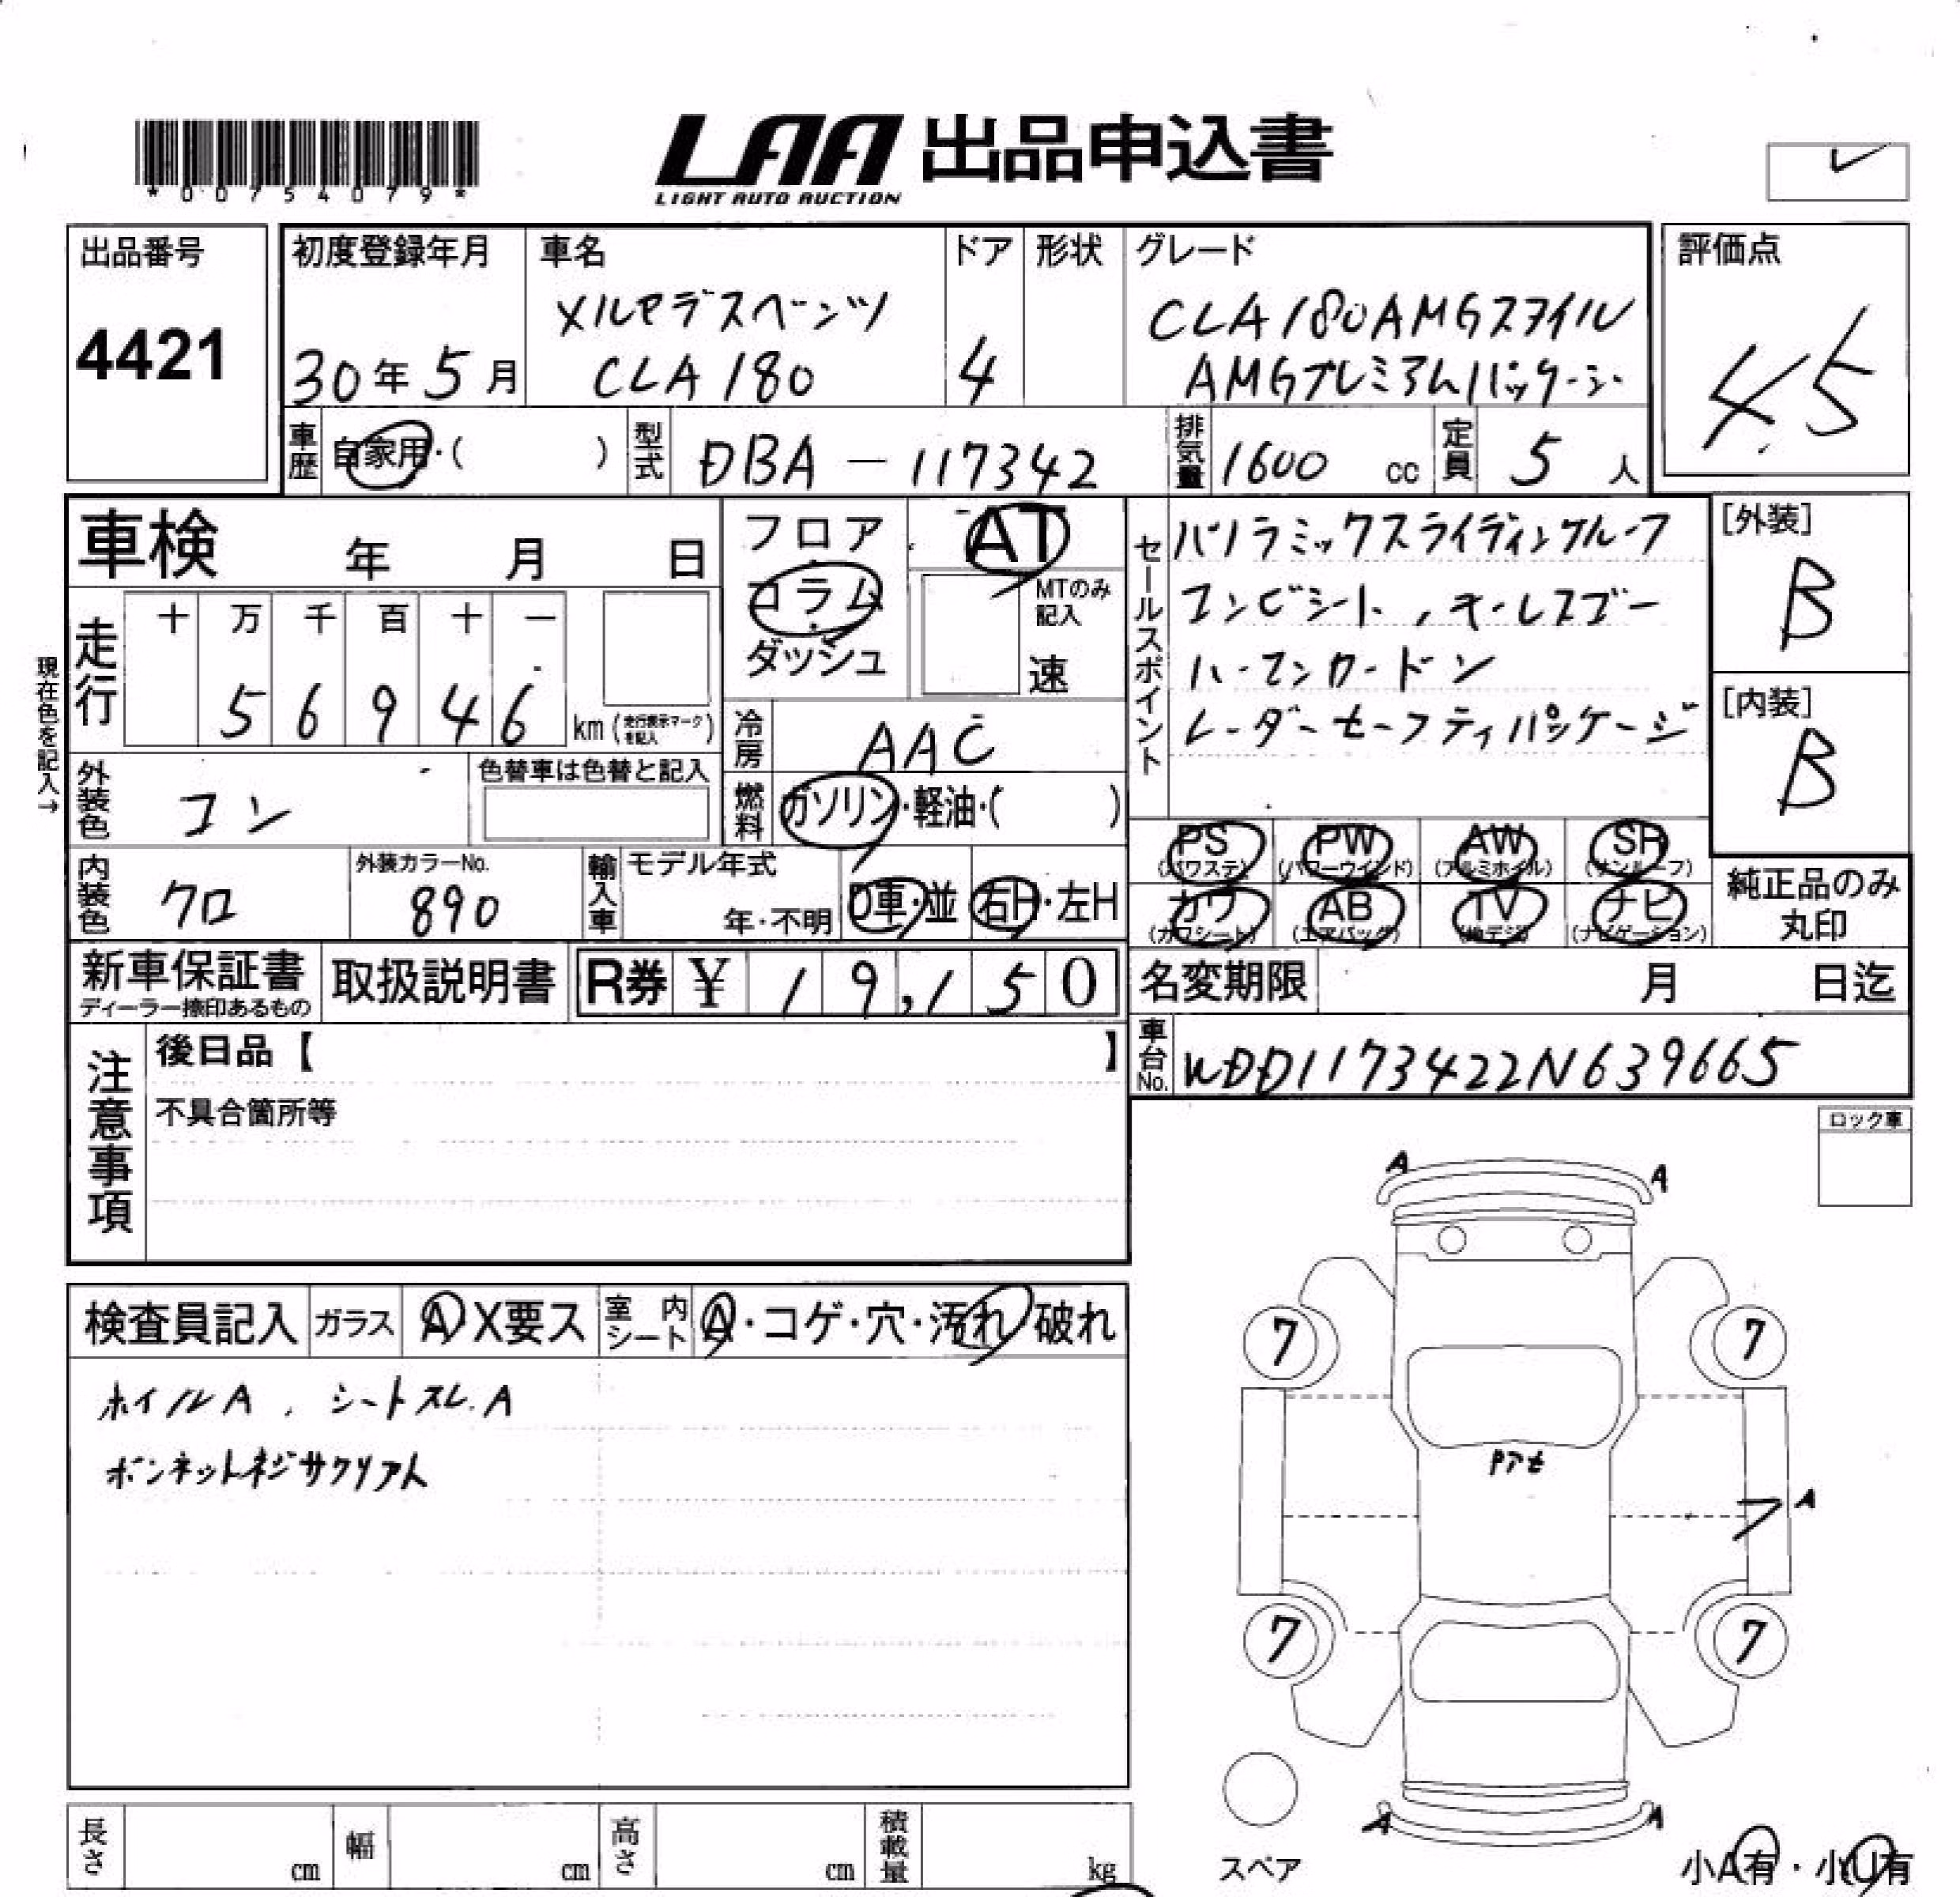 LAA 出品申込書
LIGHT AUTO AUCTION
*00754079*
出品番号
4421
初度登録年月
30年 5月
車名
メルセデスベンツ
CLA180
ドア
4
形状
グレード
CLA180AMGスタイル
AMGプレミアムパッケージ
評価点
4.5
車歴 自家用・( )
型式 DBA-117342
排気量 1600 cc
定員 5 人
車検 年 月 日
フロア
コラム
ダッシュ
AT
MTのみ
記入
速
セールスポイント
パノラミックスライディングルーフ
コンビシート,キーレスゴー
ハーマンカードン
レーダーセーフティパッケージ
[外装]
B
[内装]
B
現在色を記入→
走行
十 万 千 百 十 一
5 6 9 4 6
km (走行表示マークを記入)
冷房 AAC
外装色 コン
色替車は色替と記入
燃料 ガソリン・軽油・( )
PS (パワステ)
PW (パワーウインド)
AW (アルミホイル)
SR (サンルーフ)
内装色 クロ
外装カラーNo.
890
輸入車
モデル年式
年・不明
D車・並
右H・左H
カワ (カワシート)
AB (エアバッグ)
TV (地デジ)
ナビ (ナビゲーション)
純正品のみ
丸印
新車保証書
ディーラー捺印あるもの
取扱説明書
R券 ¥ 19,150
名変期限 月 日迄
車台No. WDD1173422N639665
注意事項
後日品【 】
不具合箇所等
ロック車
検査員記入
ガラス A X要ス
室内シート A・コゲ・穴・汚れ 破れ
ホイルA , シートスレ.A
ボンネットネジサクリアト
A A
7 7
A
7 7
A A
スペア
小A有・小U有
長さ cm
幅 cm
高さ cm
積載量 kg